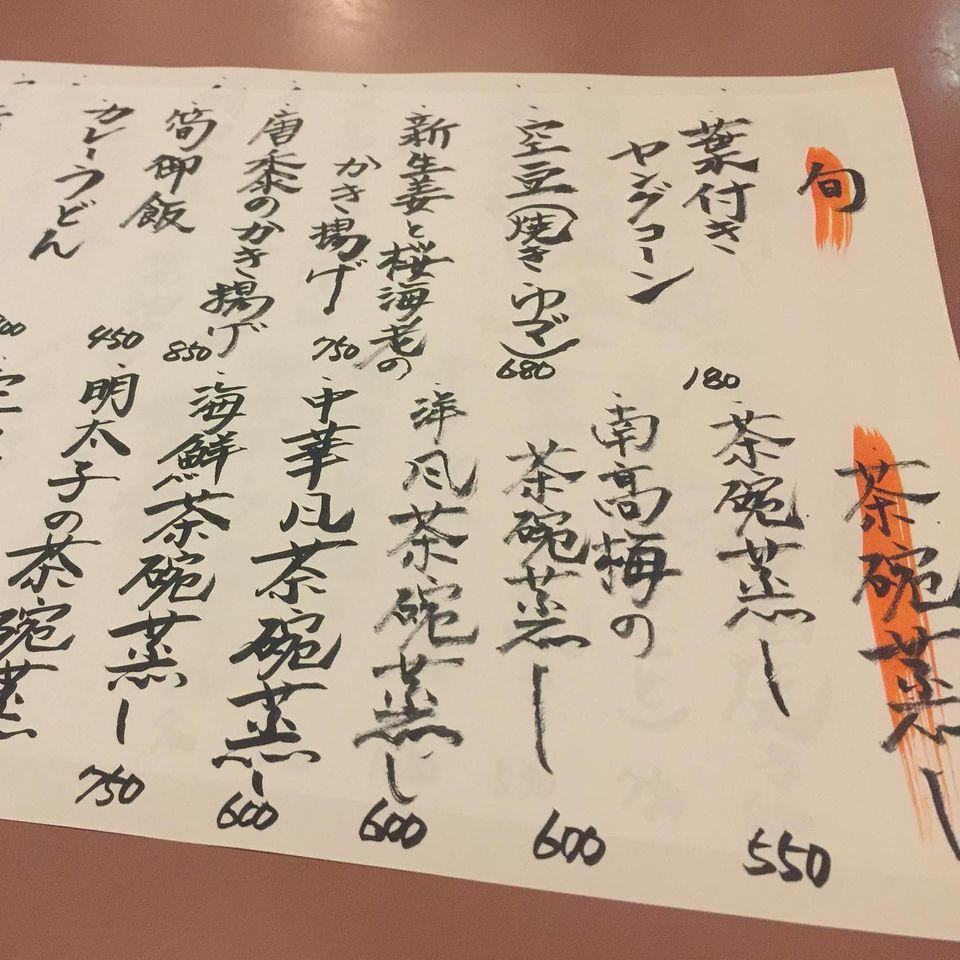 旬
葉付き
ヤングコーン
180
空豆(焼き・ゆで)
680
新生姜と桜海老の
かき揚げ
750
唐黍のかき揚げ
850
筍御飯
450
カレーうどん
茶碗蒸し
茶碗蒸し
550
南高梅の
茶碗蒸し
600
洋風茶碗蒸し
600
中華風茶碗蒸し
600
海鮮茶碗蒸し
750
明太子の茶碗蒸